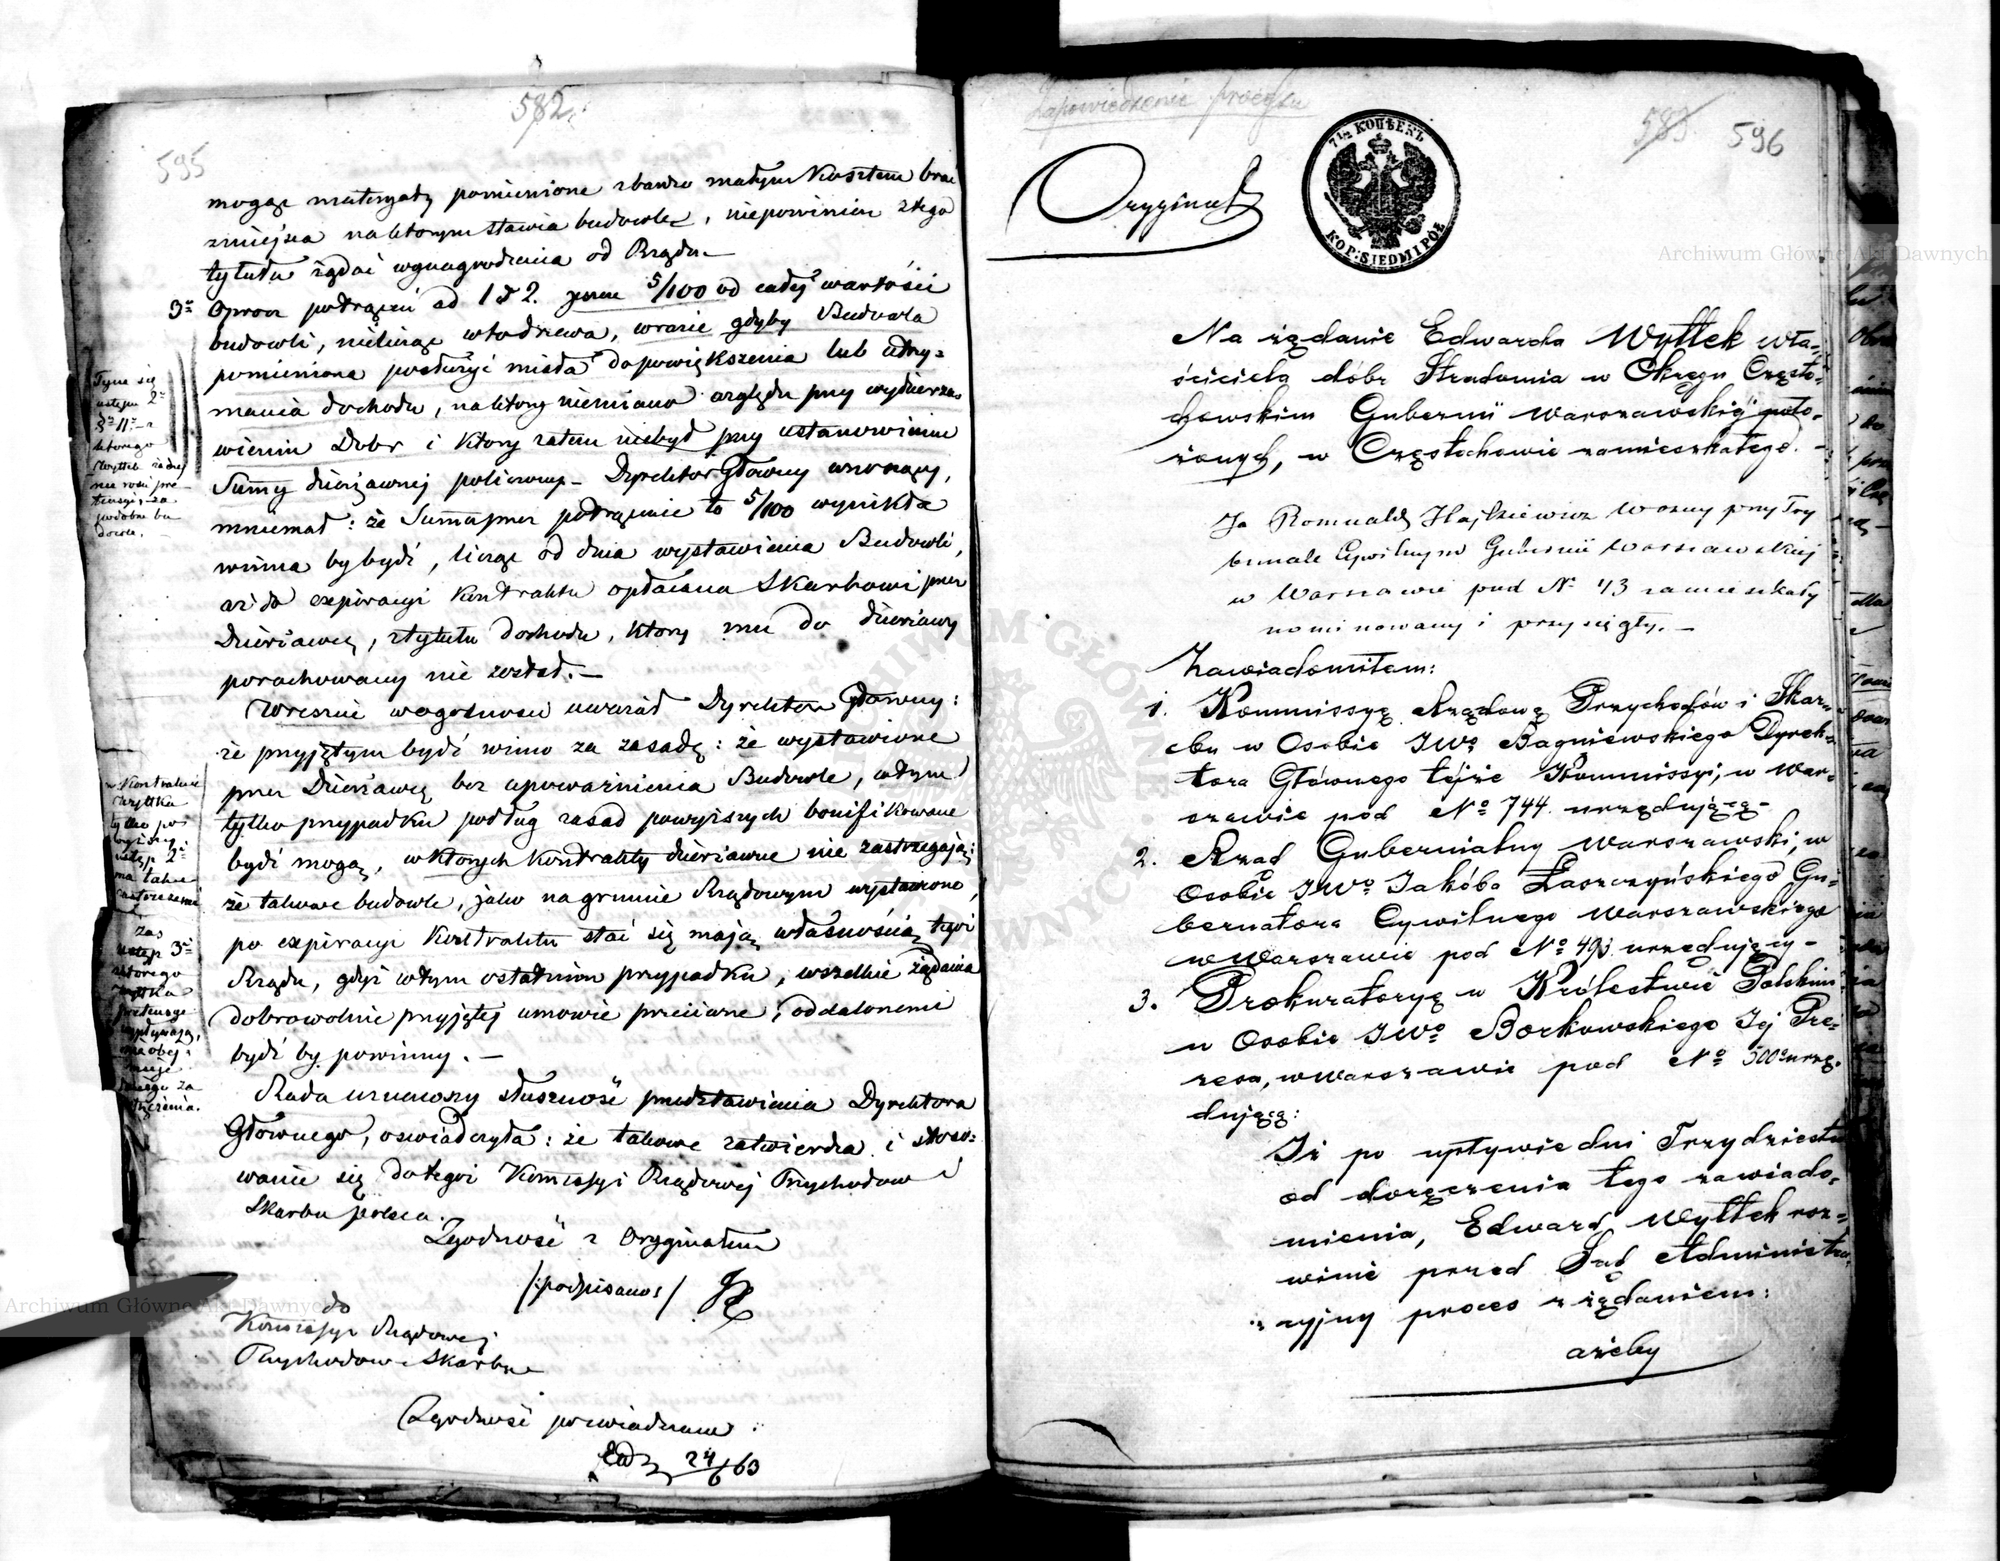 582.
595
mogąc materyały pomienione z bardzo małym Kosztem brać
zmiejsca naktorym stawia budowle, niepowinien ztego
tytułu żądać wynagrodzenia od Rządu.—
3º Oprocz potrąceń ad 1 i 2. jeszcze 5/100 od całej wartości
budowli, nielicząc wto drzewa, wrazie gdyby Budowla
pomieniona posłużyć miała do powiększenia lub utrzy-
mania dochodu, na ktory niemiano względu przy wydzierża-
wieniu Dobr i ktory zatem niebył przy ustanowieniu
Summy dzierżawnej policzony.— Dyrektor Główny wnoszący,
mniemał: że Summa przez potrącenie to 5/100 wynikła
winna by bydź, licząc od dnia wystawienia Budowli,
aż do expiracyi Kontraktu opłacana Skarbowi przez
Dzierżawcę, ztytułu dochodu, ktory mu do dzierżawy
porachowany nie został.—
Wreszcie wogolności uważał Dyrektor Główny:
że przyjętym bydź winno za zasadę: że wystawione
przez Dzierżawcę bez upoważnienia Budowle, wtym
tylko przypadku podług zasad powyższych bonifikowane
bydź mogą, wktorych Kontrakty dzierżawne nie zastrzegają:
że takowe budowle, jako na gruncie Rządowym wystawione,
po expiracyi Kontraktu stać się mają własnością tegoż
Rządu, gdyż wtym ostatnim przypadku, wszelkie żądania
dobrowolnie przyjętej umowie przeciwne, oddalonemi
bydź by powinny.—
Rada uznawszy słuszność przedstawienia Dyrektora
Głównego, oswiadczyła: że takowe zatwierdza i stoso-
wanie się do tegoż Kommissyi Rządowej Przychodow i
Skarbu poleca.
Zgodność z Oryginałem
/:podpisano:/
do
Kommissyi Rządowej
Przychodow i Skarbu
Zgodność poswiadczam:
24/6 63
Tyczy się
ustępu 2º
§ 11º z
ktorego
Wyttek żadnej
nie rosi pre-
tensyi za
podobne bu-
dowle.
w Kontrakcie
Wyttka
tylko po-
wyższy
ustęp 2º
ma takie
zastrzeżenie
zas
ustęp 3º
z ktorego
Wyttka
pretensye
wypływają,
nie obej-
muje
takiego za-
strzeżenia.
Zapowiedzenie procesu
583 596
Oryginał
7 1/2 КОПѢЕКЪ
KOP: SIEDM I PÓŁ
Na żądanie Edwarda Wyttek wła-
ściciela dóbr Stradomia w Okręgu Często-
chowskim Gubernii Warszawskiéj poło-
żonych, w Częstochowie zamieszkałego.—
Ja Romuald Hajkiewicz Wozny przy Try
bunale Cywilnym Gubernii Warszawskiej
w Warszawie pod Nº 43 zamieszkały
nominowany i przysięgły.—
Zawiadomiłem:
1. Kommissyę Rządową Przychodów i Skar-
bu w Osobie JWº Bagniewskiego Dyrek-
tora Głównego téjże Kommissyi, w War-
szawie pod Nº 744. urzędującą—
2. Rząd Gubernialny Warszawski, w
Osobie JWº Jakóba Łaszczyńskiego Gu-
bernatora Cywilnego Warszawskiego
w Warszawie pod Nº 493 urzędujący—
3. Prokuratoryę w Królestwie Polskim
w Osobie JWº Borkowskiego Jej Pre-
zesa, w Warszawie pod Nº 500 urzę-
dującą:
Iż po upływie dni Trzydziestu
od doręczenia tego zawiado-
mienia, Edward Wyttek roz-
winie przed Sąd Administra-
cyjny proces z żądaniem:
ażeby
Archiwum Główne Akt Dawnych
Archiwum Główne Akt Dawnych
ARCHIWUM GŁÓWNE AKT DAWNYCH